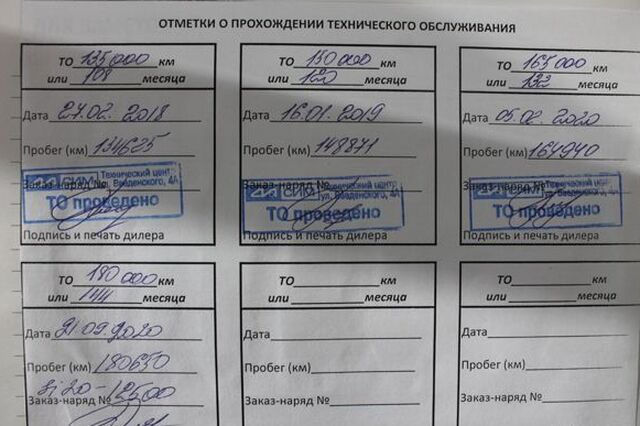 ОТМЕТКИ О ПРОХОЖДЕНИИ ТЕХНИЧЕСКОГО ОБСЛУЖИВАНИЯ
ТО 135000 км
или 108 месяца
Дата 27.02.2018
Пробег (км) 134625
Заказ-наряд №
СИМ Технический центр
ул. Виденского, 4А
ТО проведено
Подпись и печать дилера
ТО 150000 км
или 120 месяца
Дата 16.01.2019
Пробег (км) 148871
Заказ-наряд №
СИМ Технический центр
ул. Виденского, 4А
ТО проведено
Подпись и печать дилера
ТО 165000 км
или 132 месяца
Дата 05.02.2020
Пробег (км) 164940
Заказ-наряд №
СИМ Технический центр
ул. Виденского, 4А
ТО проведено
Подпись и печать дилера
ТО 180000 км
или 144 месяца
Дата 21.09.2020
Пробег (км) 180650
5i20-12500
Заказ-наряд №
ТО км
или месяца
Дата
Пробег (км)
Заказ-наряд №
ТО км
или месяца
Дата
Пробег (км)
Заказ-наряд №